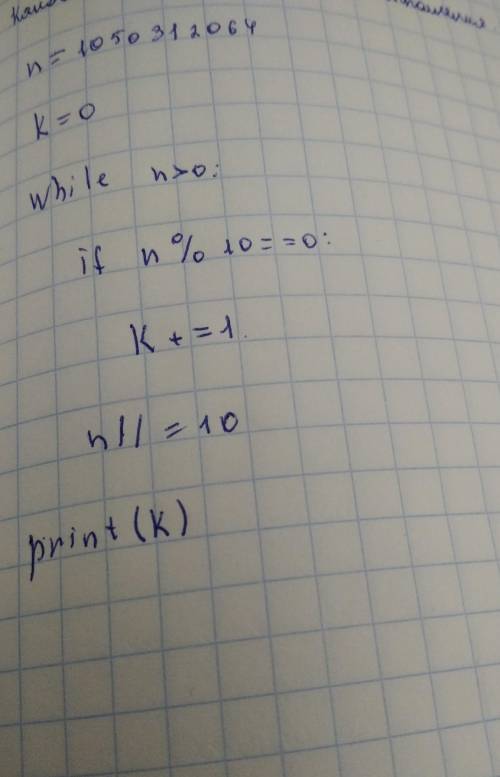 n = 1050312064
k = 0
while n>0:
if n % 10 = = 0:
k + = 1
n // = 10
print (k)